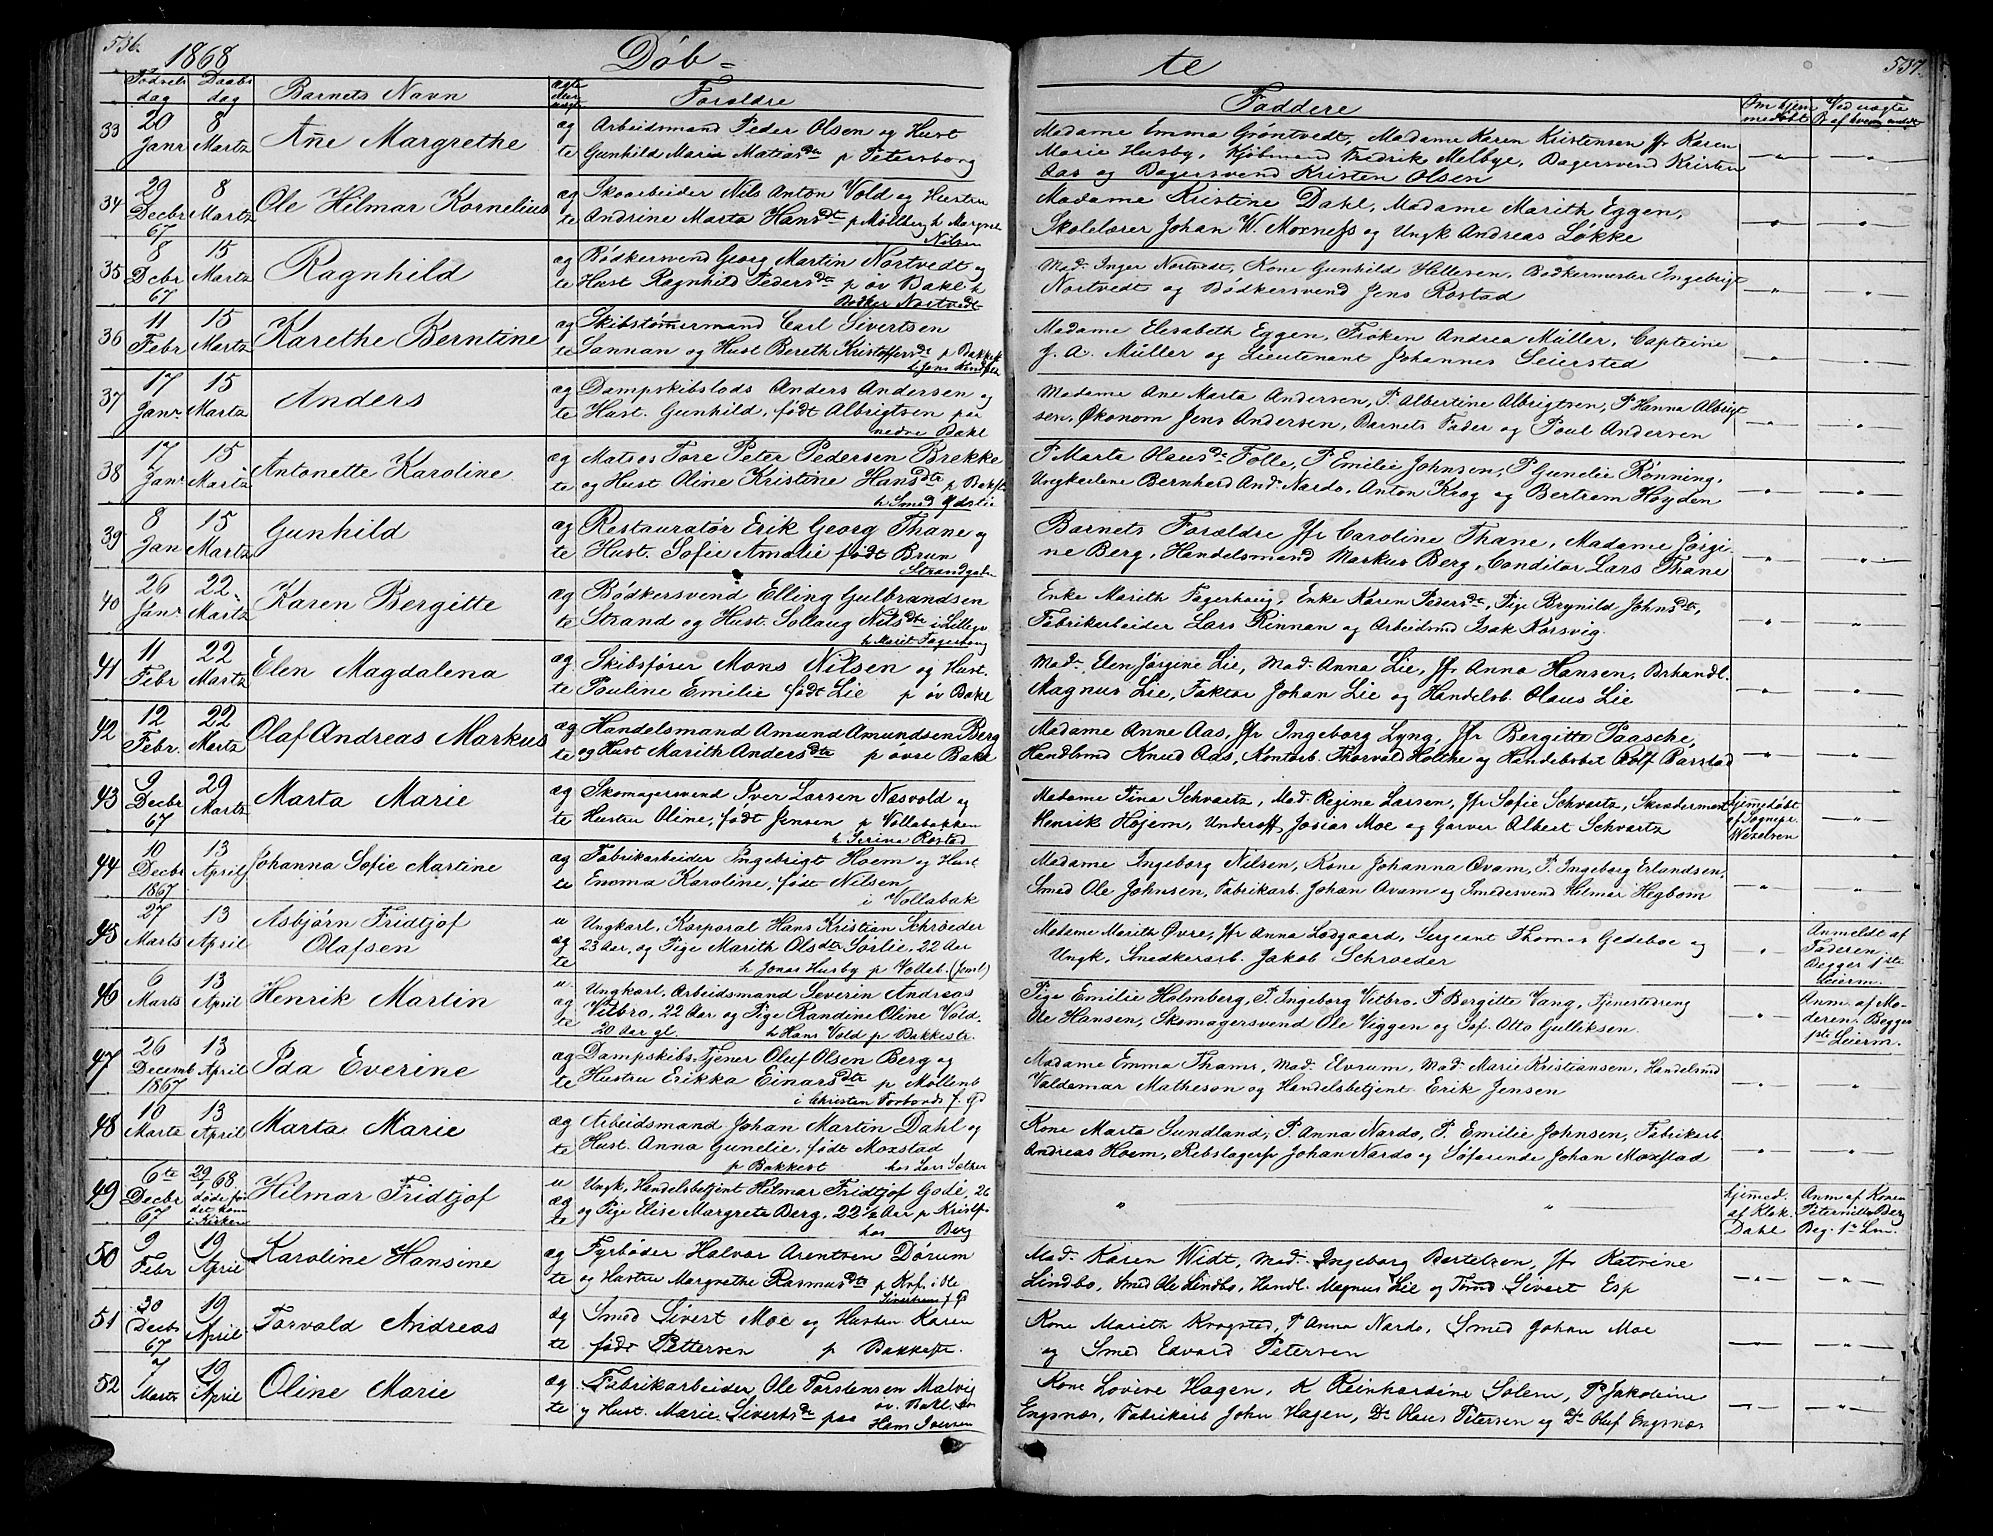 536.
1868
Döb-
Födsels dag
Daabs dag
Barnets Navn
ægte eller uægte
Forældre
33
20 Janr
8 Martz
Añe Margrethe
ægte
Arbeidsmand Peder Olsen og Hust
Gunhild Marie Matias dtr p Petersborg
34
29 Decbr 67
8 Martz
Ole Hilmar Kornelius
ægte
Skoarbeider Nils Anton Vold og Hustru
Andrine Marta Hans dtr p Møllberg h Margrete
Nilsen
35
8 Dcbr 67
15 Martz
Ragnhild
ægte
Bødkersvend Georg Martin Nortvedt og
Hust Ragnhild Peders dtr p øv Bakl h
Bødker Nortvedt
36
11 Febr
15 Martz
Karethe Berntine
ægte
Skibstømermand Carl Sivertsen
Sannan og Hust Bereth Kristoffers dtr p Bakkest
h Jens
37
17 Janr
15 Martz
Anders
ægte
Dampskibslods Anders Andersen og
Hust. Gunhild, født Albrigtsen paa
nedre Bakl
38
17 Janr
15 Martz
Antonette Karoline
ægte
Matros Tore Peter Pedersen Brekke
og Hust Oline Kristine Hans dtr p Bakst
h Smed Ydslie
39
8 Jan
15 Martz
Gunhild
ægte
Restauratør Erik Georg Thane og
Hust. Sofie Amalie født Brun
Strandgaden
40
26 Janr
22 Martz
Karen Bergitte
ægte
Bødkersvend Elling Gulbrandsen
Strand og Hust. Sollaug Nils dtr i Lillegr
h Marit Fagerhoug
41
11 Febr
22 Martz
Elen Magdalena
ægte
Skibsfører Mons Nilsen og Hust.
Pauline Emilie født Lie p øv Bakl
42
12 Febr.
22 Martz
Olaf Andreas Markus
ægte
Handelsmand Amund Amundsen Berg
og Hust Marith Anders dtr p øvre Bakl
43
9 Decbr 67
29 Martz
Marta Marie
ægte
Skomagersvend Iver Larsen Næsvold og
Hustru Oline, født Jensen p Vollabakken
h Serina Rostad
44
10 Decbr 1867
13 April
Johanna Sofie Martine
ægte
Fabrikarbeider Ingebrigt Hoem og Hust
Emma Karoline, født Nilsen
i Vollabak
45
27 Marts
13 April
Asbjørn Fridtjof
Olafsen
uægte
Ungkarl, Korporal Hans Kristian Schrøeder
23 Aar, og Pige Marith Ols dtr Sørlie, 22 Aar
h Jonas Husby p Vollab. (Jemtl)
46
6 Marts
13 April
Henrik Martin
uægte
Ungkarl, Arbeidsmand Severin Andreas
Vitbro, 22 Aar og Pige Randine Oline Vold
20 Aar gl. h Hans Vold p Bakkestr.
47
26 Decemb 1867
13 April
Ida Everine
ægte
Dampskibs Tjener Oluf Olsen Berg og
Hustru Erikka Einars dtr p Möllenb
i Christen Forbords f. Gd
48
10 Marts
13 April
Marta Marie
ægte
Arbeidsmand Johan Martin Dahl og
Hust. Anna Gunelie, født Moxstad
p Bakkest hos Lars Sæther
49
6te Decbr 67
29/1 68. døde før det kom i Kirken
Hilmar Fridtjof
uægte
Ungk. Handelsbetjent Hilmar Fridtjof Gode, 26
og Pige Elise Margrete Berg, 22½ Aar p Kristfs
hos Berg
50
9 Febr
19 April
Karoline Hansine
ægte
Fyrbøder Halvor Arentsen Dörum
og Hustru Margrethe Rasmus dtr p Krf. i Ole
Sivertsens f. Gd
51
30 Decbr 67
19 April
Torvald Andreas
ægte
Smed Sivert Moe og Hustru Karen
født Pettersen p Bakkeste.
52
7 Martz
19 April
Oline Marie
ægte
Fabrikarbeider Ole Torstensen Malvig
og Hust. Marie Siverts dtr paa øv. Bakl. hos
Hans Iversen
537.
te
Faddere
Om hjemmedøbt
Ved uægte B. af hvem anmeldt
Madame Emma Grøntvedt, Madame Karen Kristensen Jfr Karen
Marie Husby, Kjøbmand Fredrik Melbye, Bagersvend Kristen
Aas og Bagersvend Kristen Olsen
Madame Kristine Dahl, Madame Marith Eggen,
Skolelærer Johan W. Moxness og Ungk Andreas Løkke
Mad. Inger Nortvedt, Kone Gunhild Hellesen, Bødkermester Ingebrigt
Nortvedt og Bødkersvend Jens Rostad
Madame Elesabeth Eggen, Frøken Andrea Müller, Capteine
J. A. Müller og Lieutenant Johannes Seiersted
Madame Ane Marta Andersen, P. Albertine Albrigtsen, P Hanna Albrigtsen,
Økonom Jens Andersen, Barnets Fader og Poul Andersen
P Marta Olaus dtr Folle, P Emilie Johnsen, P Gunelie Rønning,
Ungkarlene Bernhard And. Nardo, Anton Krog og Bertrem Hoyden
Barnets Forældre Jfr Caroline Thane, Madame Jørgine
Berg, Handelsmand Markus Berg, Conditor Lars Thane
Enke Marith Fagerhoug, Enke Karen Peders dtr, Pige Brynild Johns dtr,
Fabrikarbeider Lars Rinnan og Arbeidsmd Isak Korsvig.
Mad. Elen Jørgine Lie, Mad. Anna Lie, Jfr Anna Hansen, Bxhandl.
Magnus Lie, Faktor Johan Lie og Handelsb. Olaus Lie
Madame Anne Aas, Jfr Ingeborg Lyng, Jfr Bergitte Paasche,
Handlsmd Knud Aas, Kontorb. Thorvald Holthe og Handelsbet Rolf Barstad
Madame Tina Schvartz, Mad. Regina Larsen, Jfr Sofie Schvartz, Skrædermest
Henrik Hojem, Underoff Josias Moe og Garver Albert Schvartz
hjemmedøbt af Sognepr. Wexelsen
Madame Ingeborg Nilsen, Kone Johanna Qvam, P. Ingeborg Erlandsen,
Smed Ole Johnsen, Fabrikarb. Johan Qvam og Smedesvend Hilmar Hegbom
Madame Marith Øvre, Jfr Anna Lodgaard, Sergeant Thomas Gedeboe og
Ungk, Snedkerarb. Jakob Schroeder
Anmeldt af Faderen, Begges 1ste Leierm.
Pige Emilie Holmberg, P. Ingeborg Vitbro, P Bergitte Vang, Tjenestedreng
Ole Hansen, Skomagersvend Ole Viggen og Søf. Otto Gulliksen.
Anm. af Moderen. Begges 1ste Leierm.
Madame Emma Thams, Mad. Elvrum, Mad. Marie Kristiansen, Handelsmd
Valdemar Matheson og Handelsbetjent Erik Jensen
Kone Marta Sundland, P. Anna Nardo, P. Emilie Johnsen, Fabrikarb.
Andreas Hoem, Rebslagersv Johan Nardo og Søfarende Johan Moxstad
hjemed. af Klok. Dahl
Anm af Konen Peternille Berg Beg. 1ste Lm.
Mad. Karen Widt, Mad. Ingeborg Bertelsen, Jfr Katrine
Lindbo, Smed Ole Lindbo, Handl. Magnus Lie og Tømd Sivert Esp
Kone Marith Krogstad, P Anna Nardo, Smed Johan Moe
og Smed Edvard Petersen
Kone Lovise Hagen, K Reinhardine Solem, P Jakobine
Engsnæs, Fabrikarb John Hagen, Do Olaus Petersen og Do Oluf Engsnæs